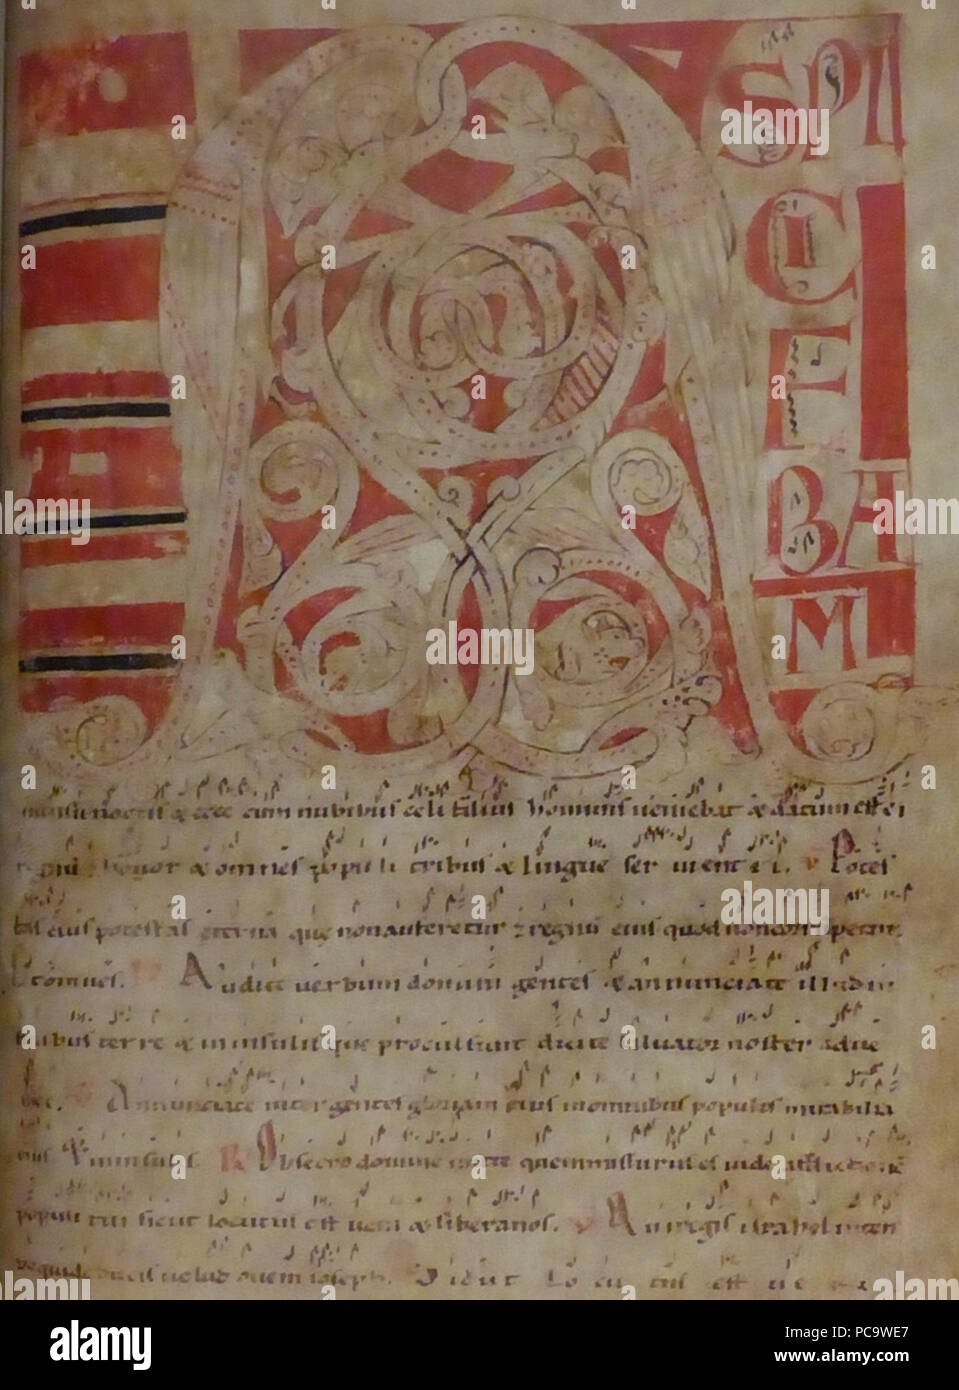 ASPI
CI
E
BA
M
in visu noctis & ecce cum nubibus celi filius hominis veniebat & datum est ei
regnu & honor & omnes populi tribus & lingue ser vient ei. V Potes
tas eius potestas eterna que non auferetur & regnu eius quod non con
Et omnes. Audite verbum domini gentes & annunciate illud in
finibus terre & in insulis que procul sunt dicite salvator noster adve
Annunciate inter gentes gloriam eius in omnibus populis mirabilia
eius & in insulis. R Obsecro domine mitte quem missurus es vide afflictione
populi tui sicut locutus est veni & libera nos. V A viregis israhel inten
de qui deducis velud ovem ioseph. Sicut lo cu tus est
alamy
Image ID: PC9WE7
www.alamy.com